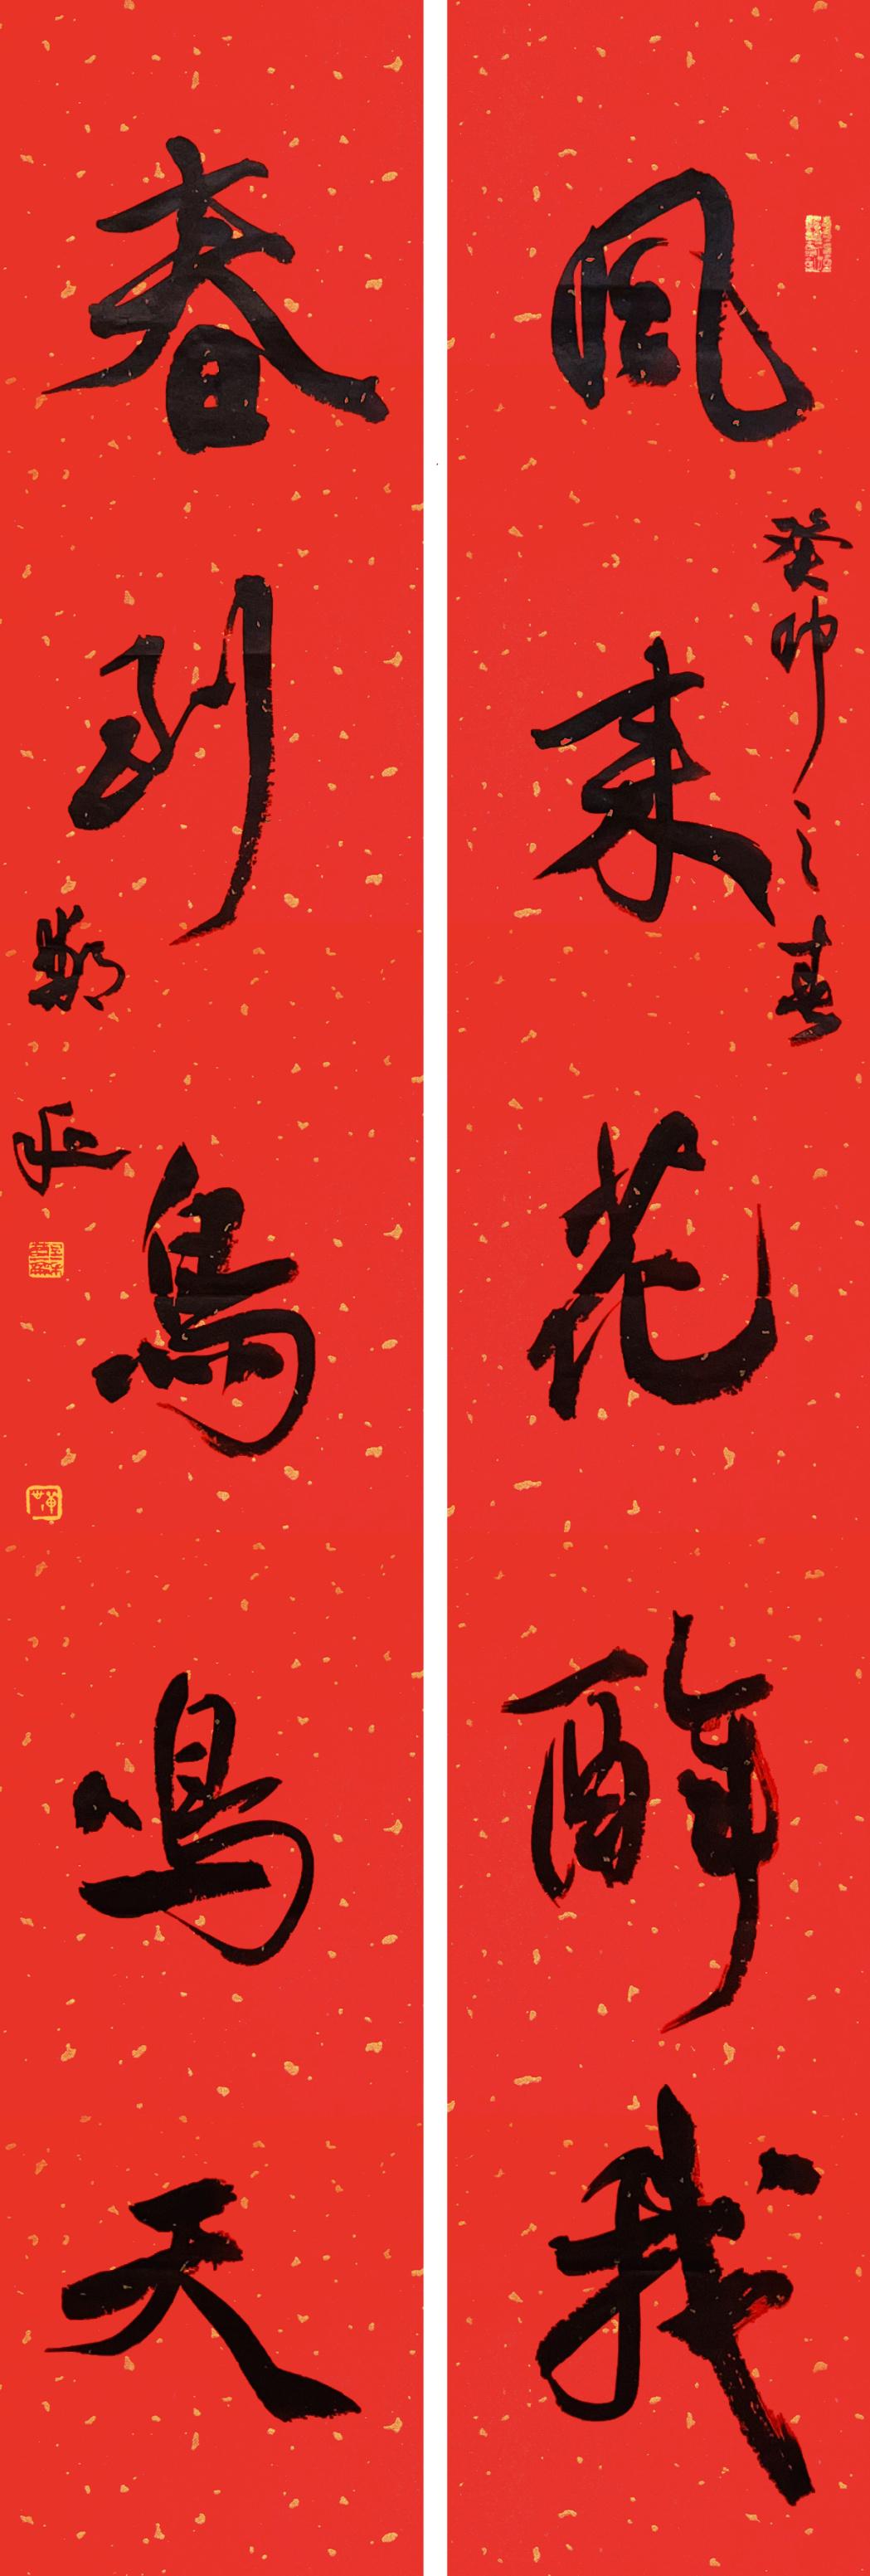 風来花醉我
癸卯之春
春到鳥鳴天